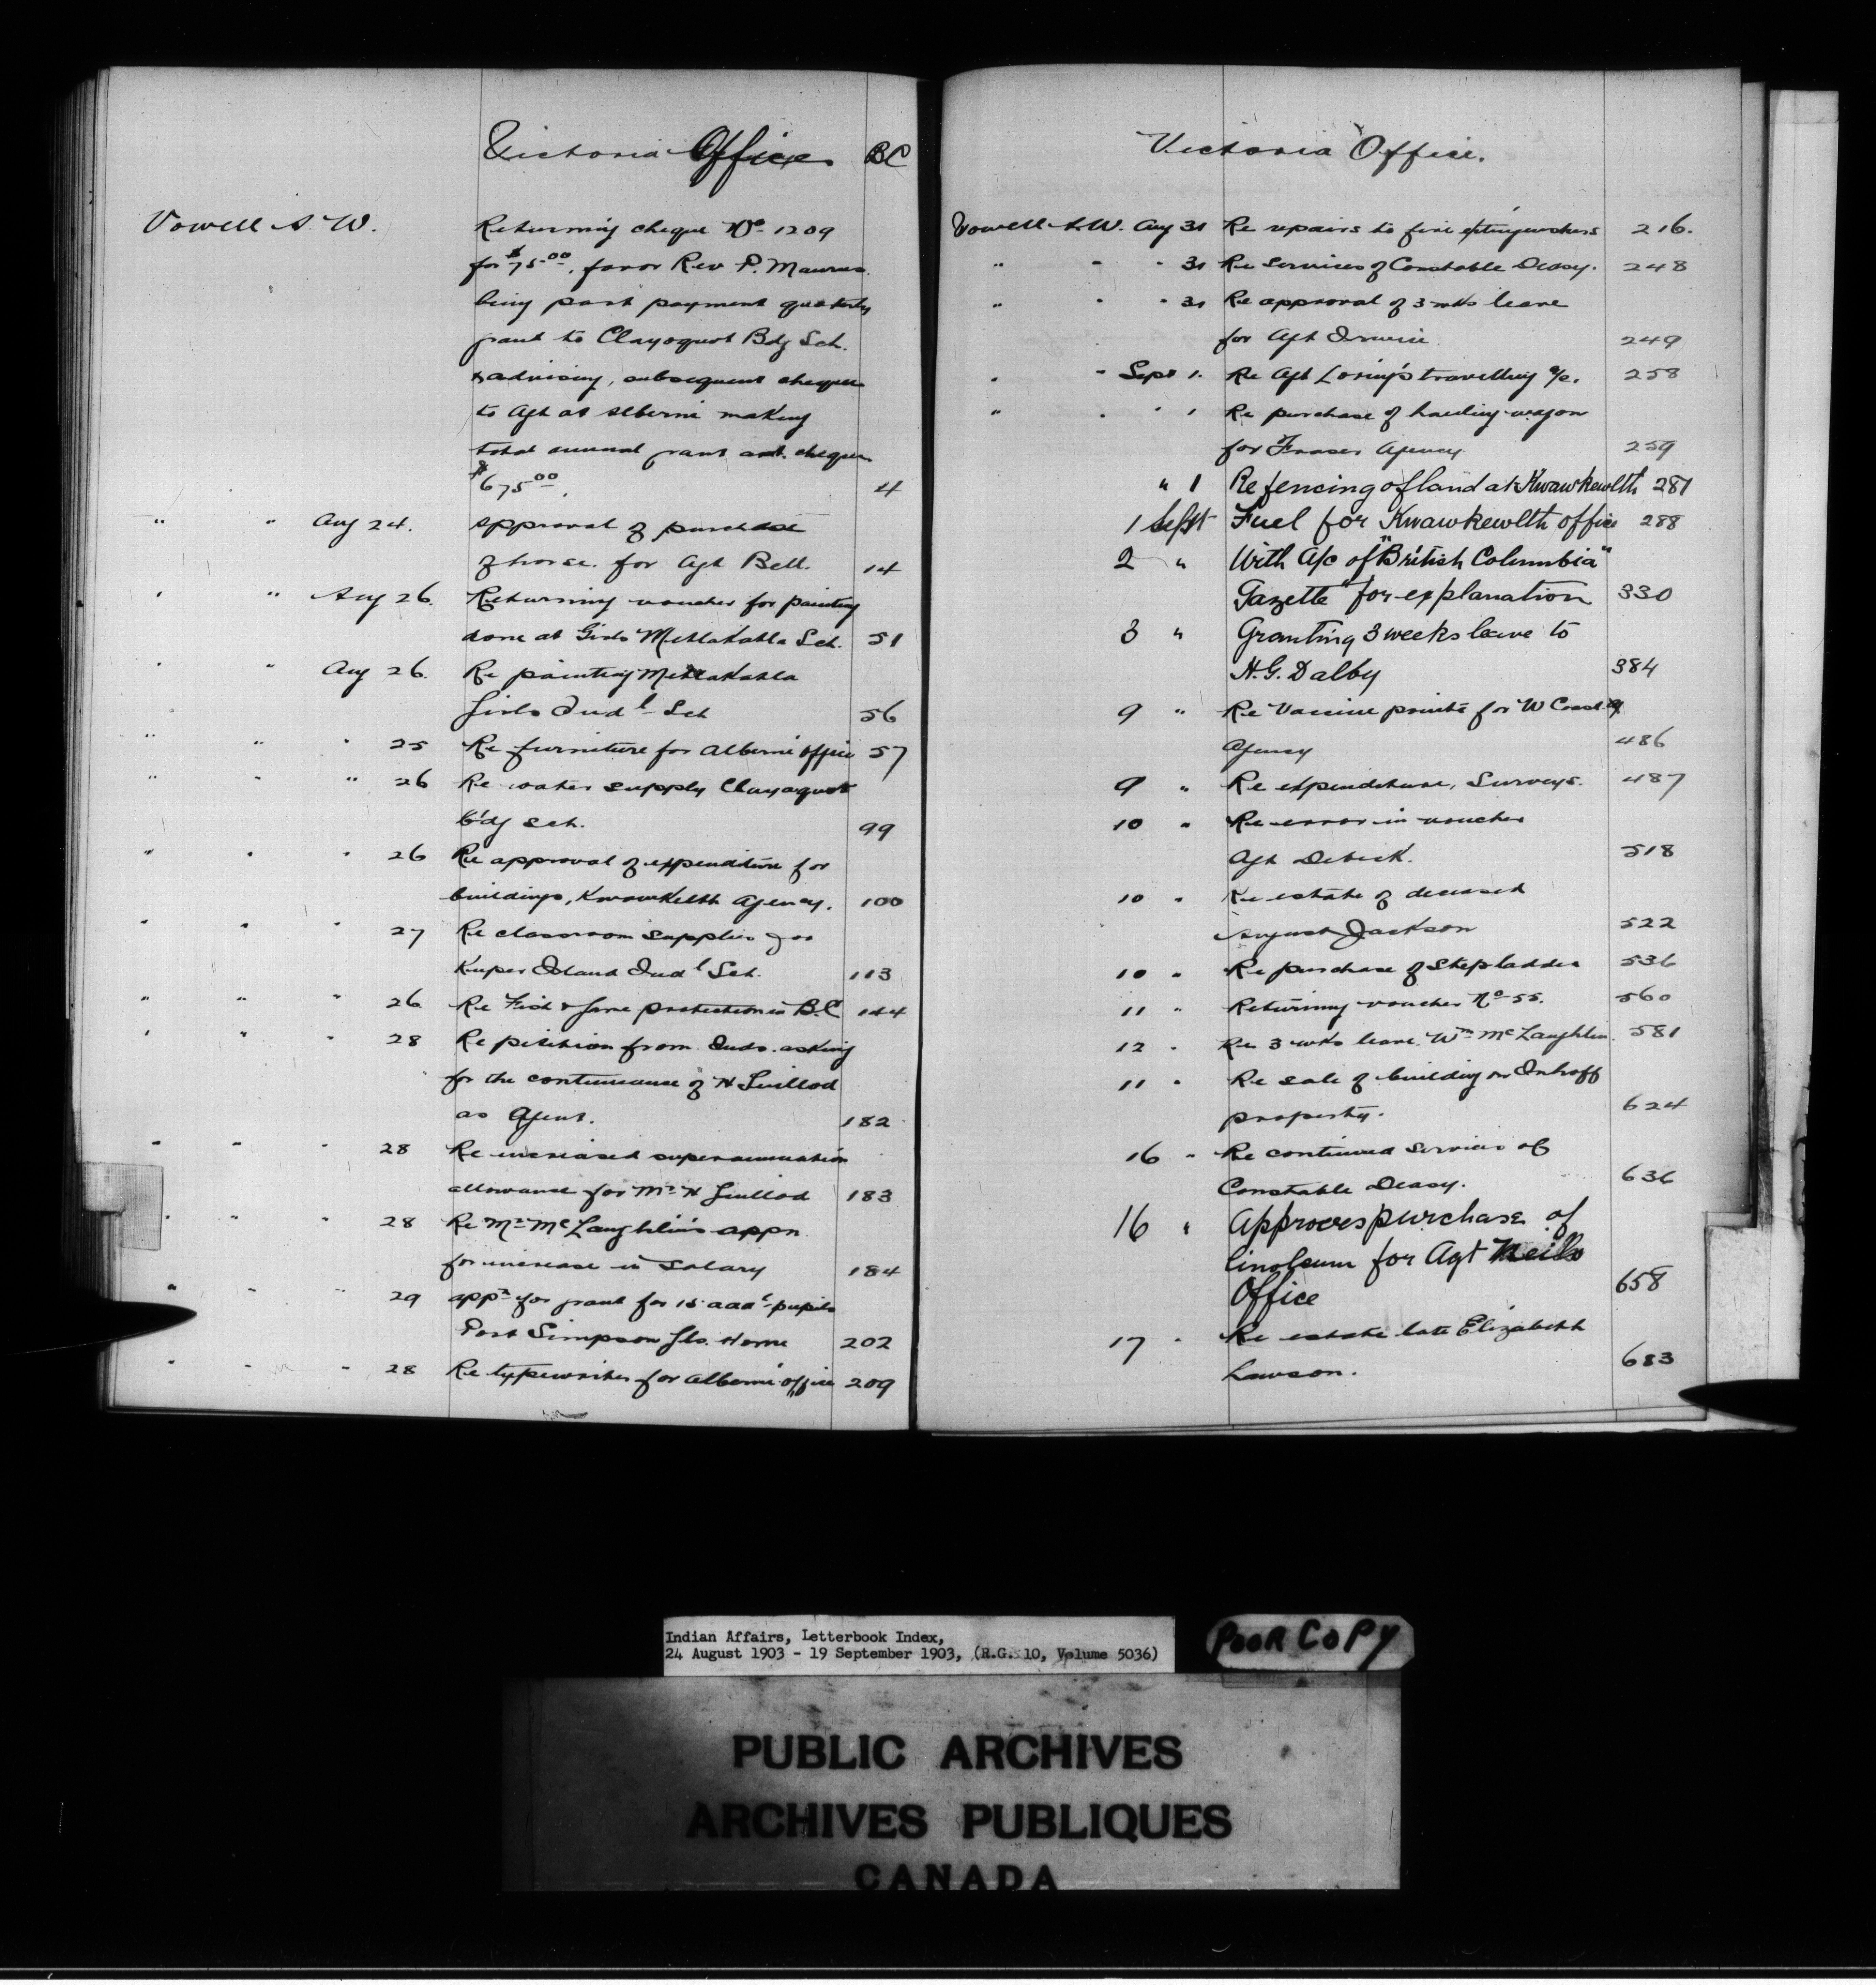 Victoria Office BC
Vowell A. W. Returning cheque No 1209
for $75.00, favor Rev P. Maurus
being part payment quarterly
grant to Clayoquot Bdg Sch.
& advising, subsequent cheques
to Agt at Alberni making
total annual grant cheques
$675.00. 4
" " Aug 24. Approval of purchase
of horse. for Agt Bell. 14
" " Aug 26. Returning voucher for painting
done at Girls Metlakahla Sch. 51
" " Aug 26. Re painting Metlakahla
Girls Indl Sch 56
" " " 25 Re furniture for Alberni office 57
" " " 26 Re water supply Clayoquot
B'dg Sch. 99
" " " 26 Re approval of expenditure for
buildings, Kwawkelth Agency. 100
" " " 27 Re classroom supplies for
Kuper Island Indl Sch. 113
" " " 26 Re Fish & Game protection in B.C 144
" " " 28 Re petition from Inds. asking
for the continuance of H Guillod
as Agent. 182
" " " 28 Re increased superannuation
allowance for Mr H Guillod 183
" " " 28 Re Mr McLaughlin's appn
for increase in Salary 184
" " " 29 appn for grant for 15 addl pupils
Port Simpson Gls. Home 202
" " " 28 Re typewriter for Alberni office 209
Victoria Office.
Vowell A.W. Aug 31 Re repairs to fire extinguishers 216.
" " " 31 Re Services of Constable Deasy. 248
" " " 31 Re approval of 3 wks leave
for Agt Irwin 249
" " Sept 1. Re Agt Loring's travelling a/c. 258
" " " 1 Re purchase of hauling wagon
for Fraser Agency 259
" 1 Re fencing of land at Kwawkewlth 281
1 Sept Fuel for Kwawkewlth office 288
2 " With A/c of "British Columbia"
Gazette" for explanation 330
3 " Granting 3 weeks leave to
H. G. Dalby 384
9 " Re Vaccine points for W Coast
Agency 486
9 " Re expenditure, Surveys. 487
10 " Re error in voucher
Agt Debeck. 518
10 " Re estate of deceased
August Jackson 522
10 " Re purchase of Stepladder 536
11 " Returning voucher No 55. 560
12 " Re 3 wks leave, Wm McLaughlin. 581
11 " Re sale of building on Imhoff
property. 624
16 " Re continued services of
Constable Deasy. 636
16 " Approves purchase of
linoleum for Agt Neills
Office 658
17 " Re estate late Elizabeth
Lawson. 683
Indian Affairs, Letterbook Index,
24 August 1903 - 19 September 1903, (R.G. 10, Volume 5036)
POOR COPY
PUBLIC ARCHIVES
ARCHIVES PUBLIQUES
CANADA